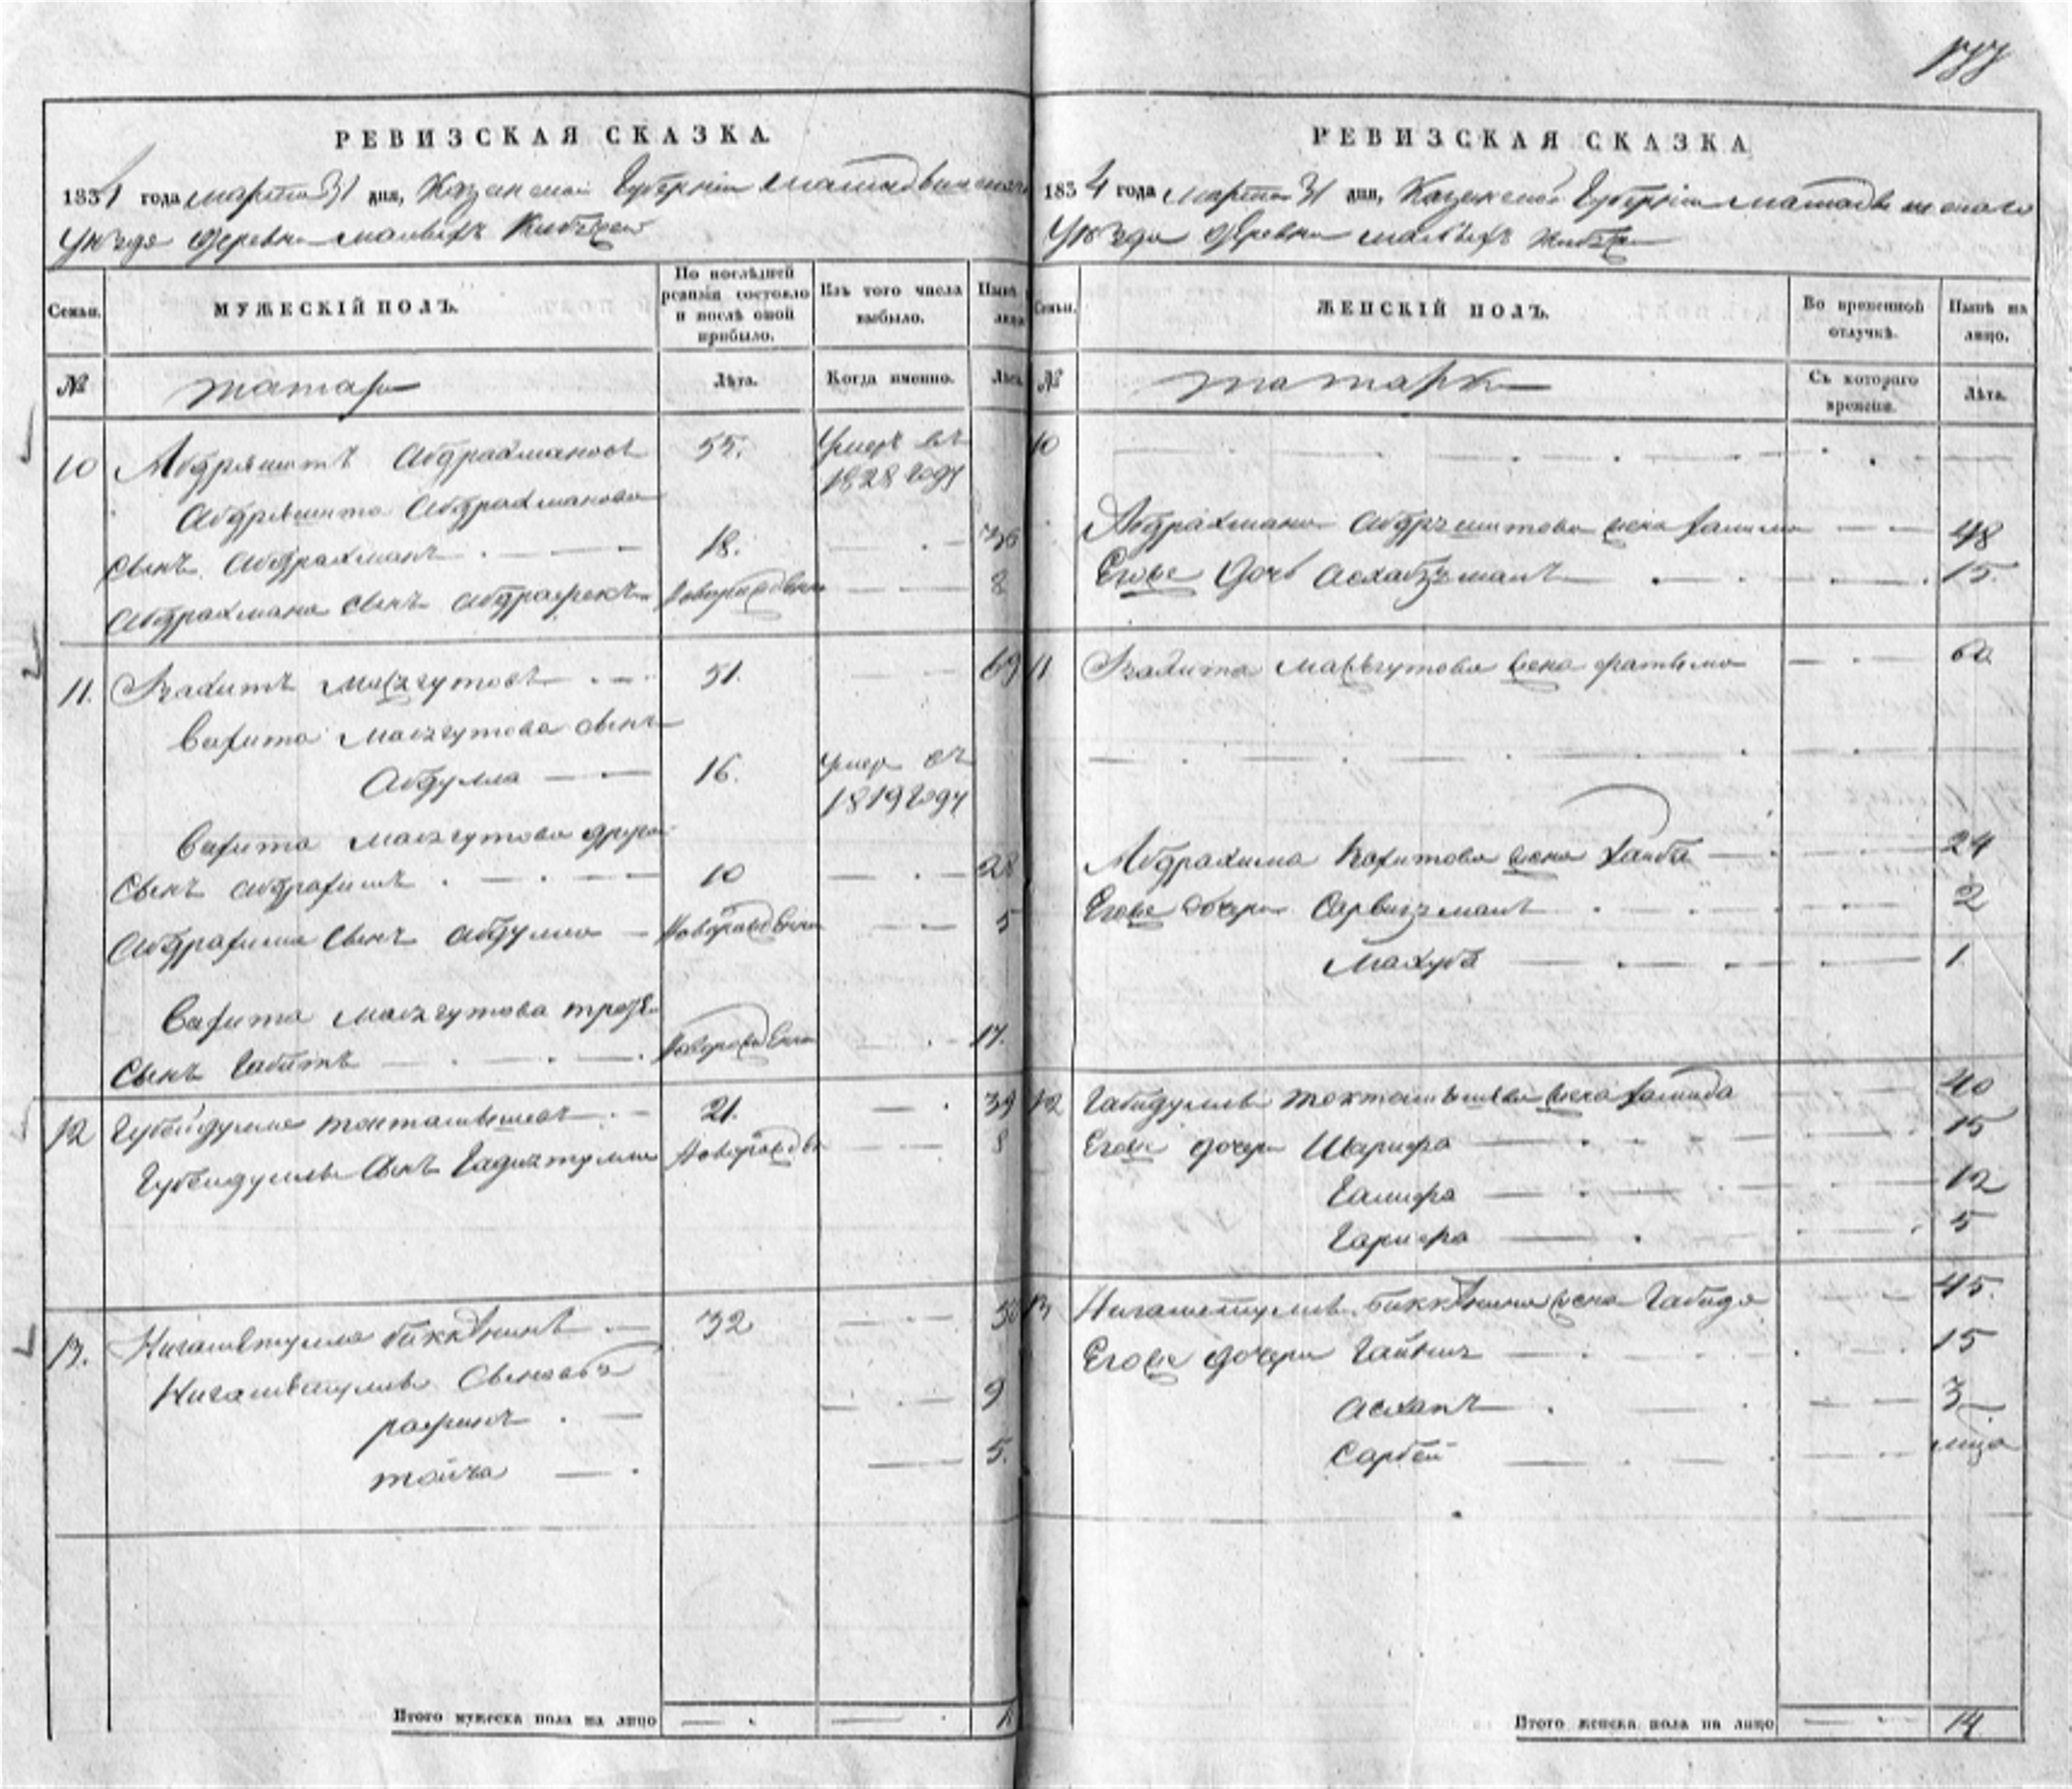 РЕВИЗСКАЯ СКАЗКА
1834 года марта 31 дня, Казанской Губернии Мамадышскаго
Уѣзда Деревни малыхъ Кибячей
Семьи.
МУЖЕСКІЙ ПОЛЪ.
По послѣдней ревизіи состояло и послѣ оной прибыло.
Изъ того числа выбыло.
Нынѣ лицо
№
татары
Лѣта.
Когда именно.
Лѣта
10 Абдряшитъ Абдрахмановъ 55. Умеръ въ
1828 году
Абдряшита Абдрахманова
сынъ Абдрахманъ 18. 36
Абдрахмана сынъ Абдрафекъ новорожденъ 8
11. Вахитъ Масягутовъ 51. 69
Вахита Масягутова сынъ
Абдулла 16. умеръ въ
1819 году
Вахита Масягутова другой
сынъ Абдрахимъ 10 28
Абдрахима сынъ Абдулла новорожденъ 5
Вахита Масягутова третій
сынъ Габитъ новорожденъ 17.
12 Губейдулла Токташышевъ 21. 39
Губейдуллы сынъ новорожденъ 8
13. Нигаметулла Биккѣнинъ 32 50
Нигаметуллы сыновья
рафикъ 9
тойча 5.
Итого мужеска пола на лицо
177
РЕВИЗСКАЯ СКАЗКА
1834 года Марта 31 дня, Казанской Губерніи Мамадышскаго
Уѣзда Деревни малыхъ Кибячей
Семьи.
ЖЕНСКІЙ ПОЛЪ.
Во временной отлучкѣ.
Нынѣ на лицо.
№
татарки
Съ котораго времени.
Лѣта.
10
Абдрахмана Абдряшитова жена Халима 48
Его дочь Асхабзяманъ 15.
11 Вахита Масягутова жена фатыма 60
Абдрахима Вахитова жена Хаиба 24
Его дочери Сарвизяманъ 2
Махуба 1
12 Габидуллы жена Хамида 40
Его дочери Шарифа 15
Галифа 12
Гарифа 5
13 Нигаметуллы Биккѣнина жена Габида 45.
Его дочери 15
Асхапъ 3
Сарбей
Итого женска пола на лицо 14